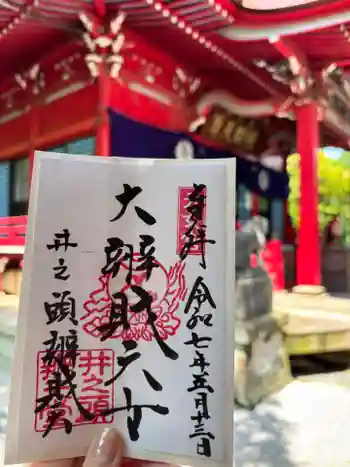 奉拝 令和七年五月十三日
大辨財天女
井之頭辨財天
井之頭